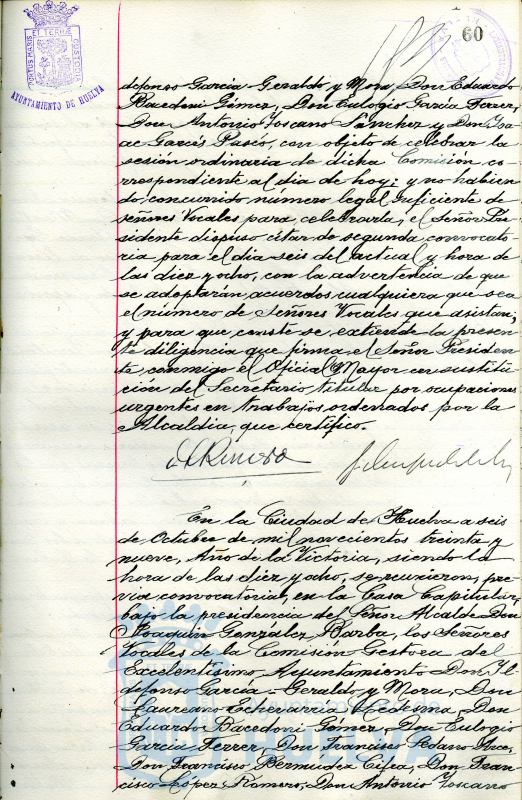 PORTUS MARIS ET TERRAE CUSTODIA
AYUNTAMIENTO DE HUELVA
60
defonso García-Geraldo y Mora, Don Eduardo
Bacedoni Gómez, Don Eulogio García Ferrer,
Don Antonio Toscano Sánchez y Don Isa-
ac Garcés Pasco, con objeto de celebrar la
sesión ordinaria de dicha Comisión co-
rrespondiente al día de hoy; y no habien
do concurrido número legal suficiente de
señores Vocales para celebrarla, el Señor Pre-
sidente dispuso citar de segunda convocato-
ria para el día seis del actual y hora de
las diez y ocho, con la advertencia de que
se adoptarán acuerdos cualquiera que sea
el número de Señores Vocales que asistan;
y para que conste se extiende la presen-
te diligencia que firma el Señor Presiden
te conmigo el Oficial Mayor en sustitu-
ción del Secretario titular por ocupaciones
urgentes en trabajos ordenados por la
Alcaldía, que certifico.
En la Ciudad de Huelva a seis
de Octubre de mil novecientos treinta y
nueve, Año de la Victoria, siendo la
hora de las diez y ocho, se reunieron, pre-
via convocatoria, en la Casa Capitular,
bajo la presidencia del Señor Alcalde Don
Joaquín González Barba, los Señores
Vocales de la Comisión Gestora del
Excelentísimo Ayuntamiento Don Il-
difonso García-Geraldo y Mora, Don
Laureano Echevarría Ledesma, Don
Eduardo Bacedoni Gómez, Don Eulogio
García Ferrer, Don Francisco Sedano
Don Francisco Bermúdez Cifra, Don Fran-
cisco López Romero, Don Antonio Toscano